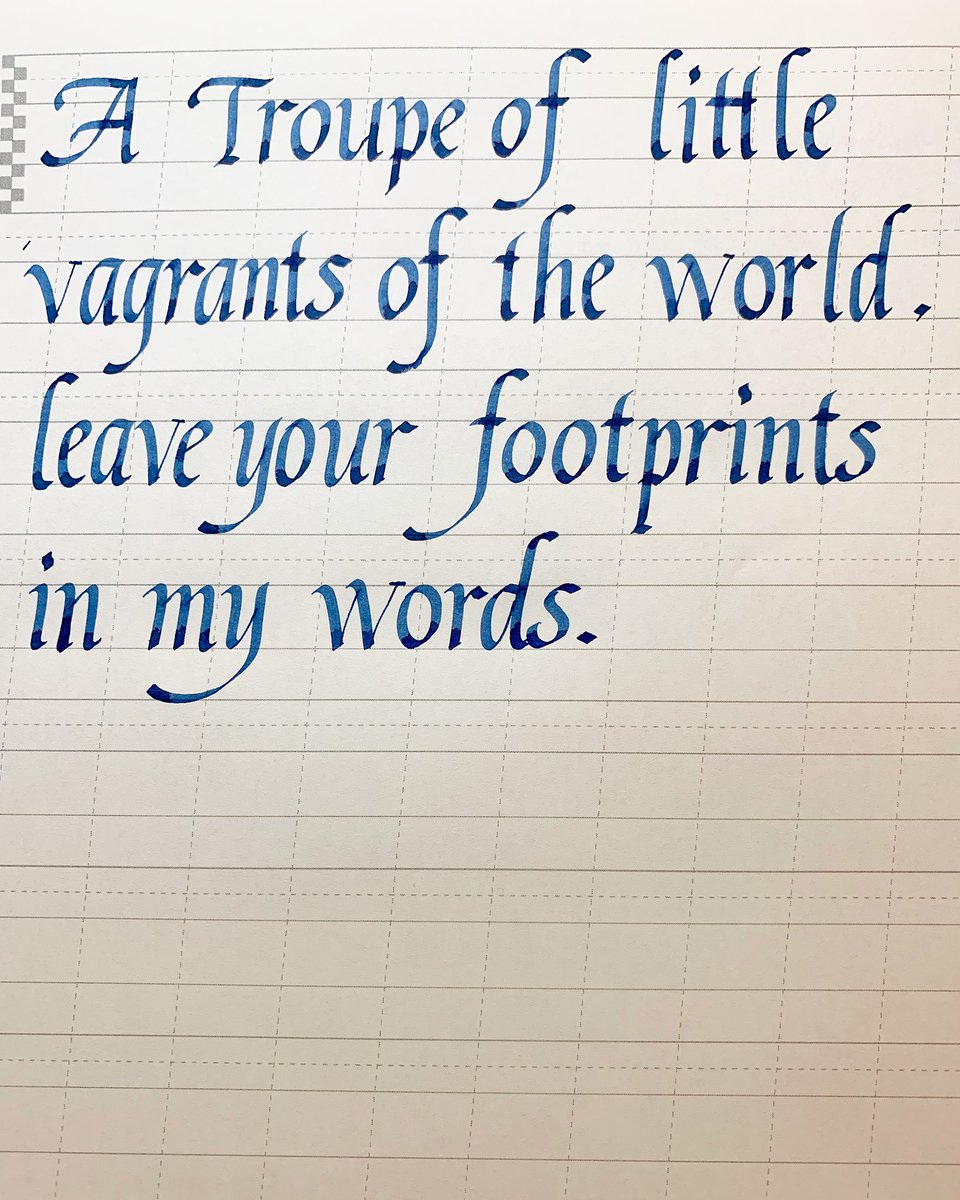 A Troupe of little
vagrants of the world,
leave your footprints
in my words.